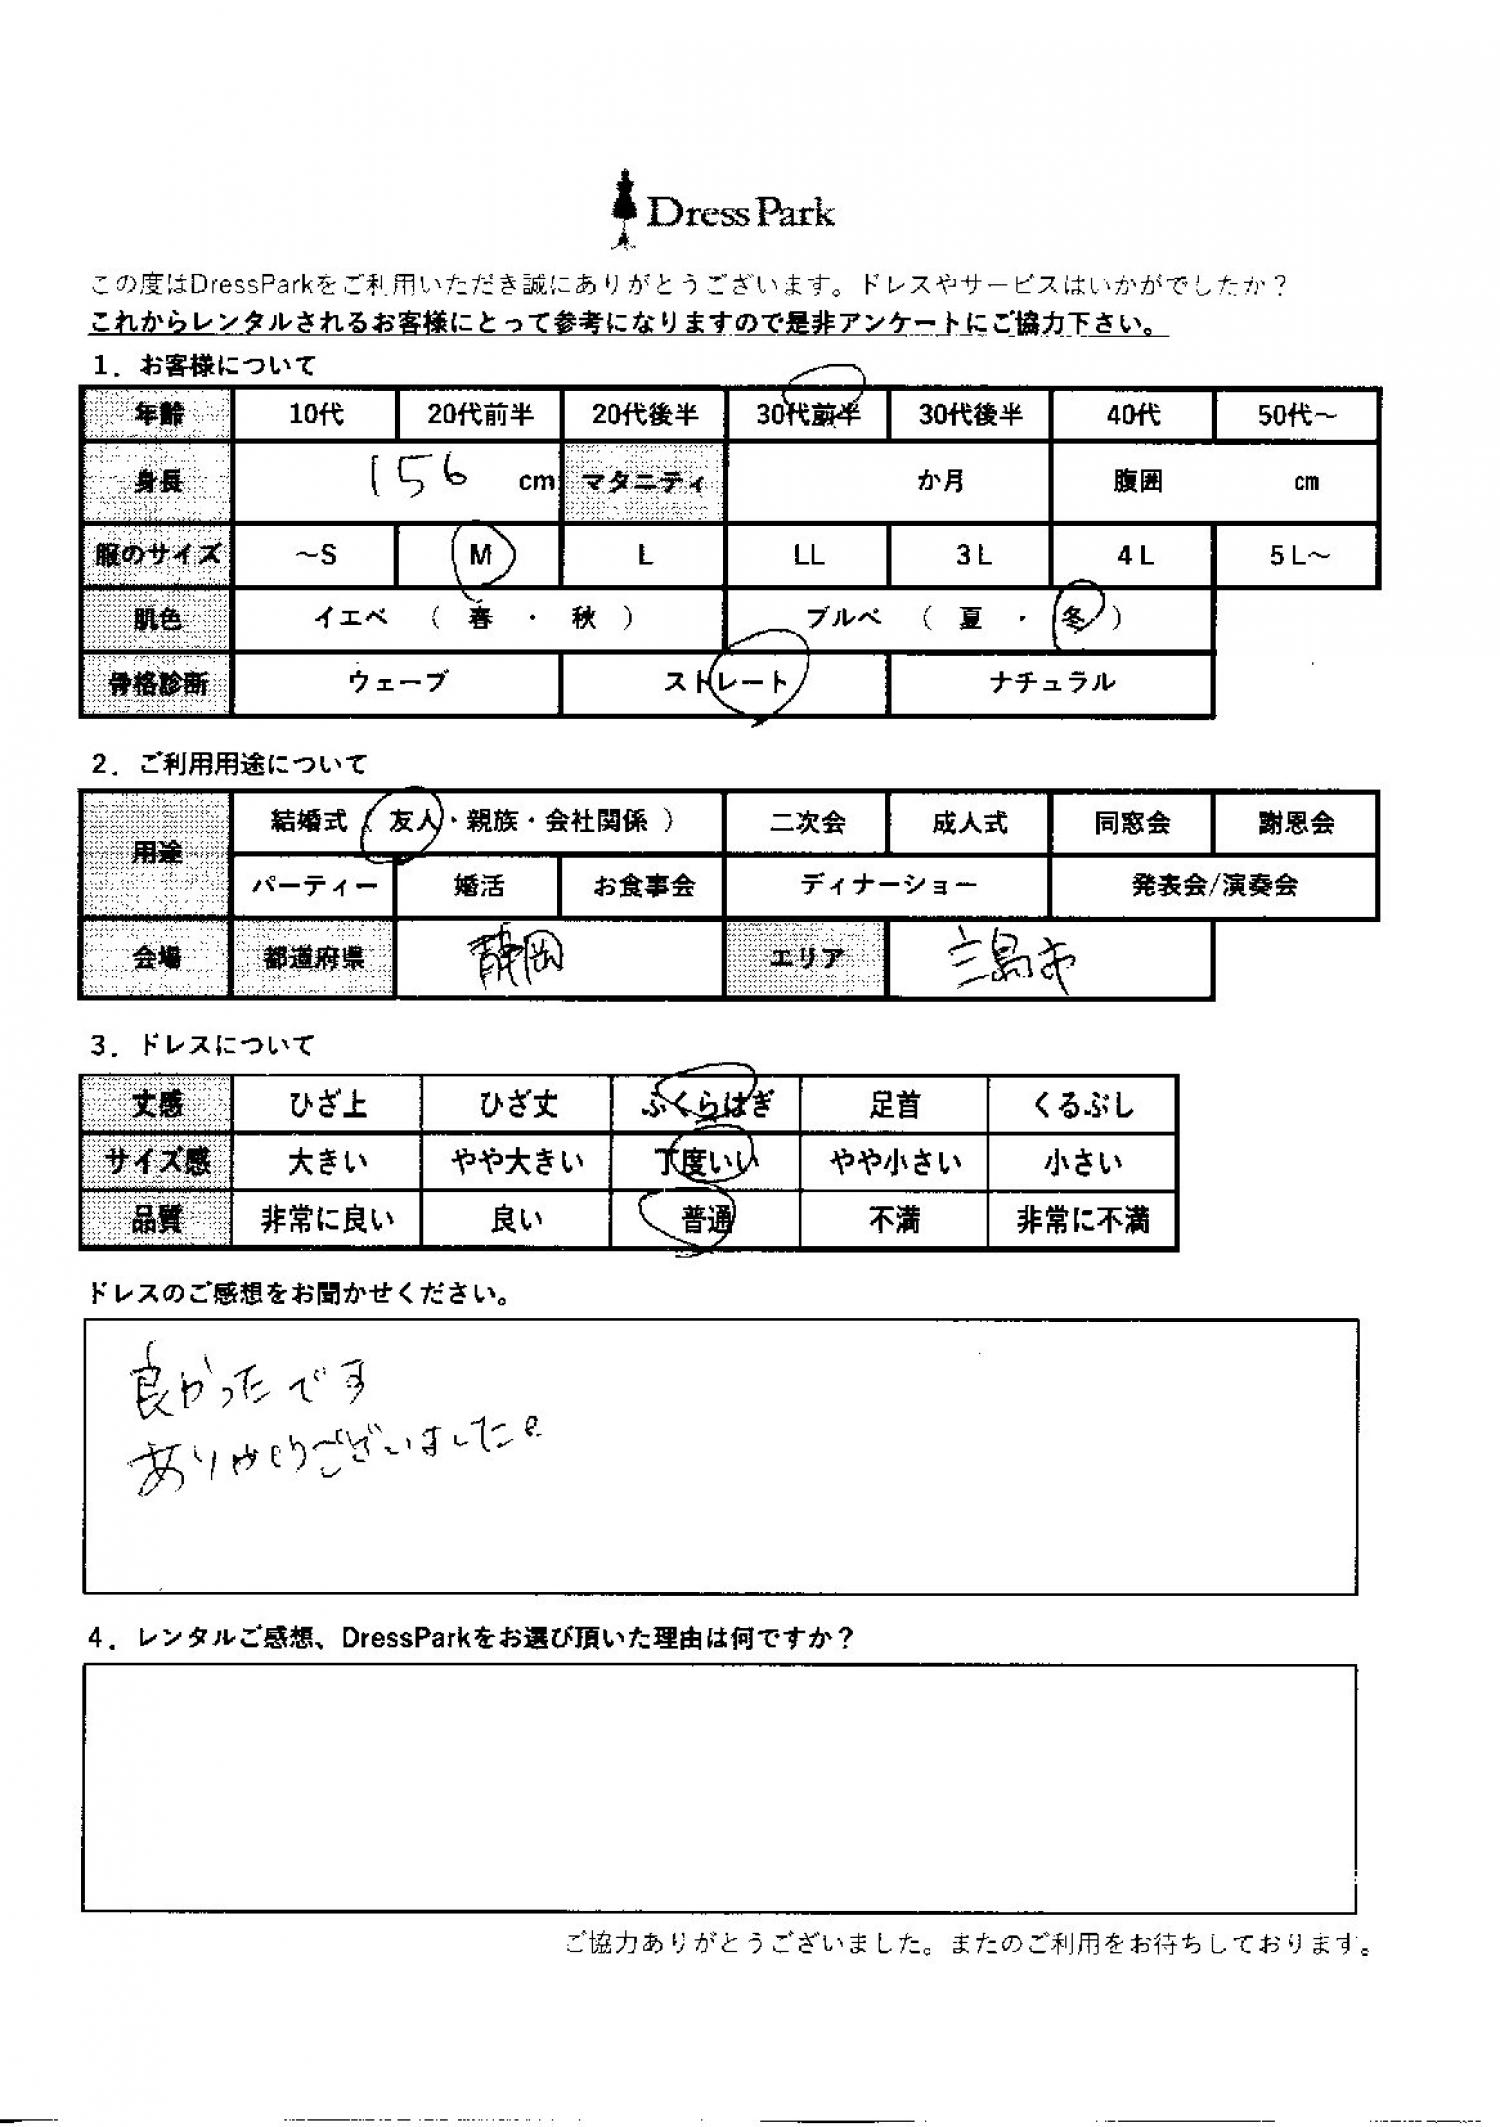 Dress Park
この度はDressParkをご利用いただき誠にありがとうございます。ドレスやサービスはいかがでしたか?
これからレンタルされるお客様にとって参考になりますので是非アンケートにご協力下さい。
1. お客様について
年齢 10代 20代前半 20代後半 30代前半 30代後半 40代 50代〜
身長 156 cm マタニティ か月 腹囲 cm
服のサイズ 〜S M L LL 3L 4L 5L〜
肌色 イエベ ( 春 ・ 秋 ) ブルベ ( 夏 ・ 冬 )
骨格診断 ウェーブ ストレート ナチュラル
2. ご利用用途について
用途 結婚式 ( 友人・親族・会社関係 ) 二次会 成人式 同窓会 謝恩会
パーティー 婚活 お食事会 ディナーショー 発表会/演奏会
会場 都道府県 静岡 エリア 三島市
3. ドレスについて
丈感 ひざ上 ひざ丈 ふくらはぎ 足首 くるぶし
サイズ感 大きい やや大きい 丁度いい やや小さい 小さい
品質 非常に良い 良い 普通 不満 非常に不満
ドレスのご感想をお聞かせください。
良かったです
ありがとうございました。
4. レンタルご感想、DressParkをお選び頂いた理由は何ですか?
ご協力ありがとうございました。またのご利用をお待ちしております。